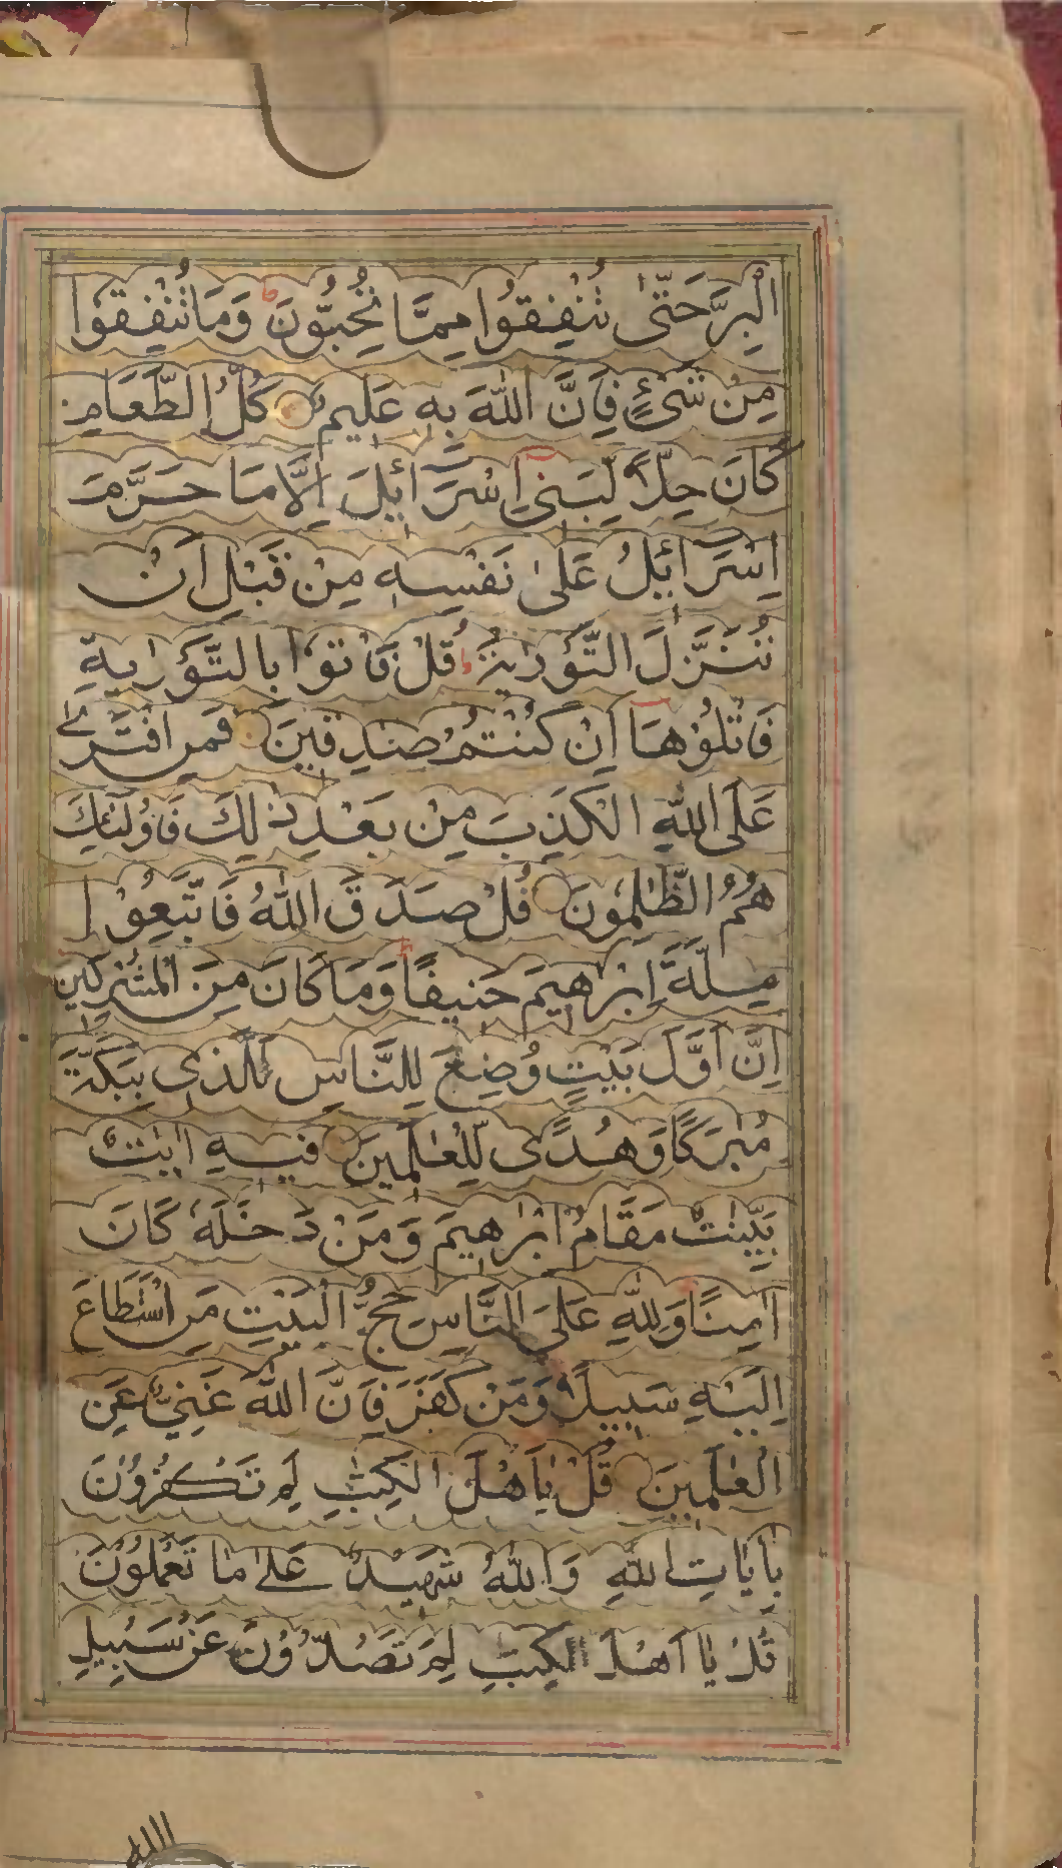 الْبِرَّ حَتّٰى تُنْفِقُوا مِمَّا تُحِبُّونَ وَمَا تُنْفِقُوا
مِنْ شَىْءٍ فَاِنَّ اللّٰهَ بِهٖ عَلِيمٌ كُلُّ الطَّعَامِ
كَانَ حِلًّا لِبَنِىٓ اِسْرَآئِلَ اِلَّا مَا حَرَّمَ
اِسْرَآئِلُ عَلٰى نَفْسِهٖ مِنْ قَبْلِ اَنْ
تُنَزَّلَ التَّوْرٰيةُ قُلْ فَاْتُوا بِالتَّوْرٰيةِ
فَاتْلُوْهَآ اِنْ كُنْتُمْ صٰدِقِينَ فَمَنِ افْتَرٰى
عَلَى اللّٰهِ الْكَذِبَ مِنْ بَعْدِ ذٰلِكَ فَاُولٰٓئِكَ
هُمُ الظّٰلِمُونَ قُلْ صَدَقَ اللّٰهُ فَاتَّبِعُوْا
مِلَّةَ اِبْرٰهِيمَ حَنِيفًا وَمَا كَانَ مِنَ الْمُشْرِكِينَ
اِنَّ اَوَّلَ بَيْتٍ وُضِعَ لِلنَّاسِ لَلَّذِى بِبَكَّةَ
مُبٰرَكًا وَهُدًى لِلْعٰلَمِينَ فِيهِ اٰيٰتٌ
بَيِّنٰتٌ مَقَامُ اِبْرٰهِيمَ وَمَنْ دَخَلَهُ كَانَ
اٰمِنًا وَلِلّٰهِ عَلَى النَّاسِ حِجُّ الْبَيْتِ مَنِ اسْتَطَاعَ
اِلَيْهِ سَبِيلًا وَمَنْ كَفَرَ فَاِنَّ اللّٰهَ غَنِىٌّ عَنِ
الْعٰلَمِينَ قُلْ يٰٓاَهْلَ الْكِتٰبِ لِمَ تَكْفُرُوْنَ
بِاٰيَاتِ اللّٰهِ وَاللّٰهُ شَهِيْدٌ عَلٰى مَا تَعْمَلُوْنَ
قُلْ يَا اَهْلَ الْكِتٰبِ لِمَ تَصُدُّوْنَ عَنْ سَبِيلِ
الله